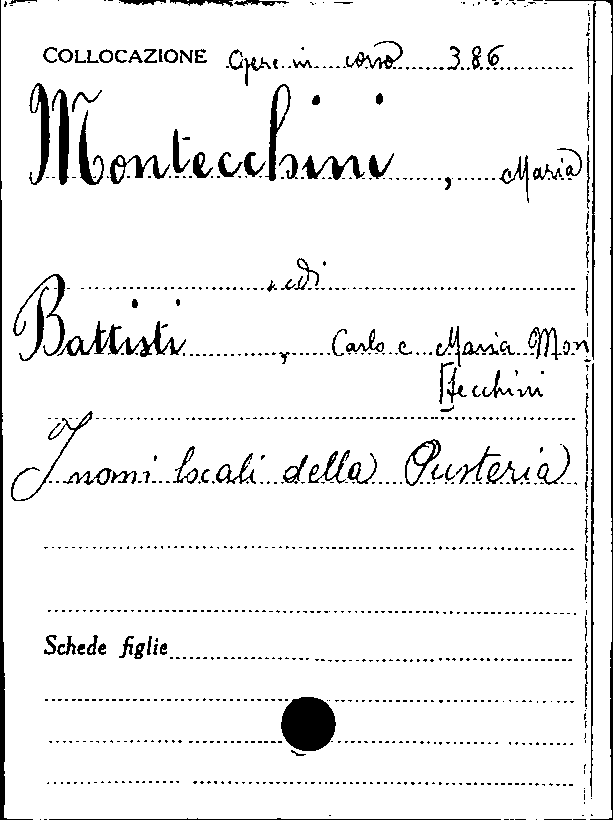 COLLOCAZIONE Opere in corso 386
Montecchini, Maria
vedi
Battisti, Carlo e Maria Mon
[tecchini
I nomi locali della Pusteria
Schede figlie